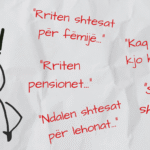 "Rriten shtesat
për fëmijë..."
"Kaq
kjo
"Rriten
pensionet..."
"Ndalen shtesat
për lehonat..."